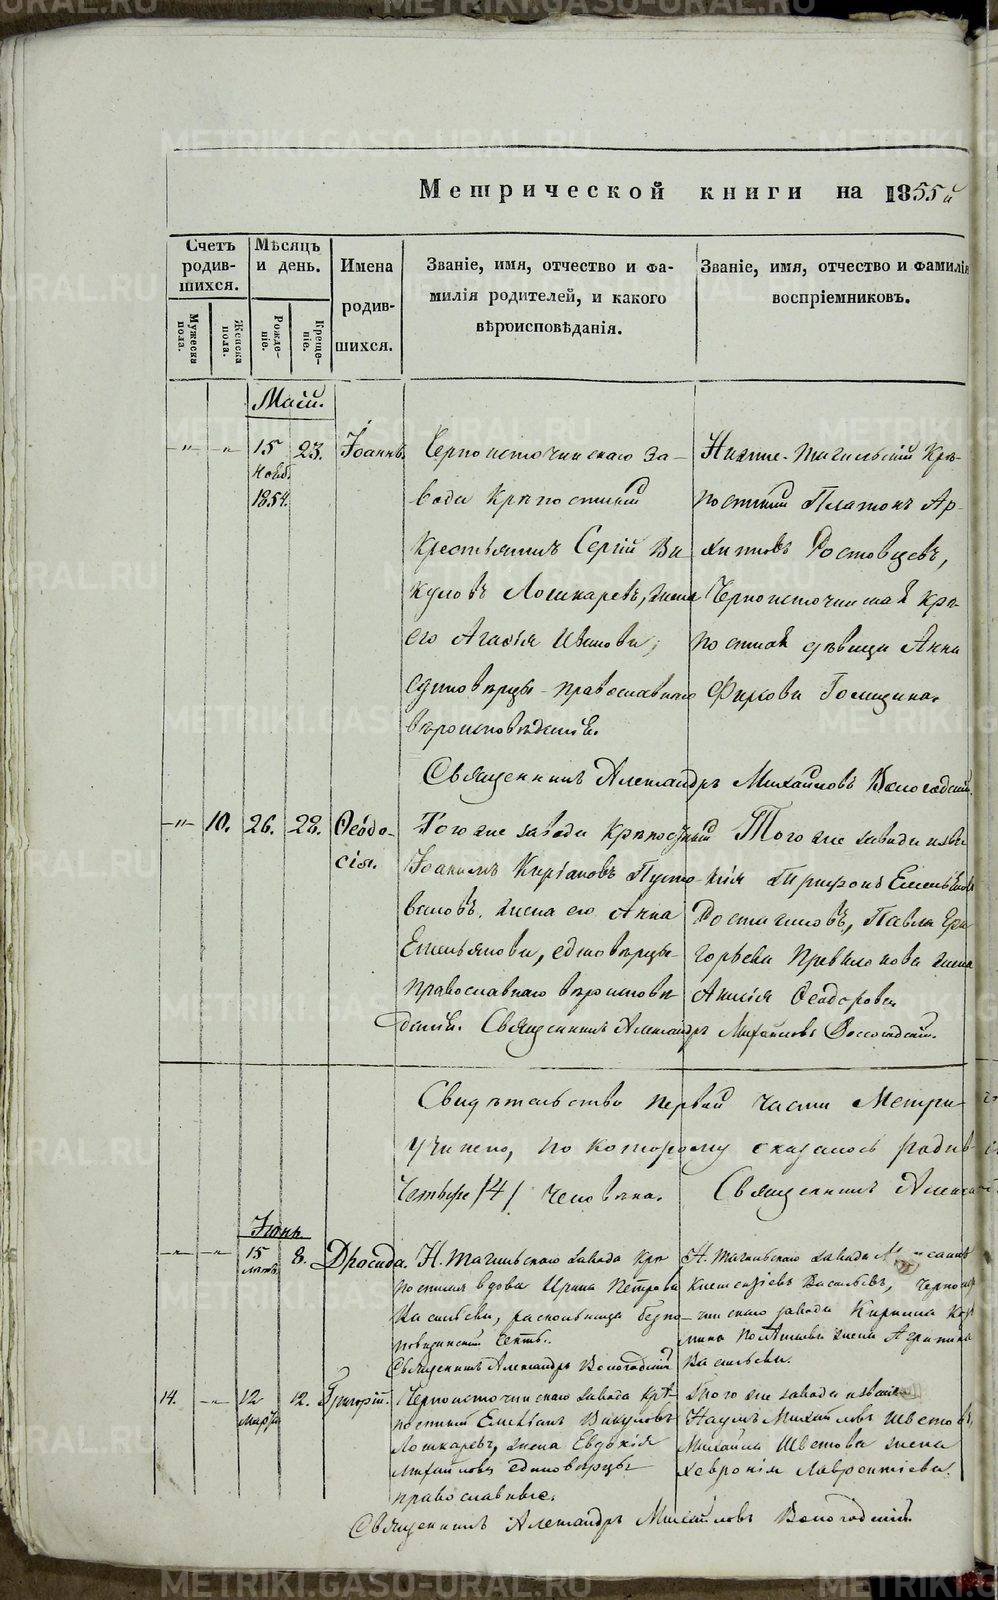 METRIKI.GASO-URAL.RU
Метрической книги на 1855й
Счетъ родив-шихся.
Мѣсяцъ и день.
Имена родив-шихся.
Званіе, имя, отчество и фа-
милія родителей, и какого
вѣроисповѣданія.
Званіе, имя, отчество и фамилія
воспріемниковъ.
Мужеска пола.
Женска пола.
Рожде-ніе.
Креще-ніе.
Маій.
15 Нояб. 1854. 23. Іоаннъ.
Черноисточинскаго За-
вода Крѣпостный
Крестьянинъ Сергій Ви
куловъ Лошкаревъ, жена
его Агафія Иванова,
единовѣрцы православнаго
вѣроисповѣданія.
Нижне-Тагильскій Крѣ-
постный Платонъ Ар-
хиповъ Ростовцевъ,
Черноисточинская Крѣ-
постная дѣвица Анна
Фирсова Голицина.
Священникъ Александръ Михайловъ Вологодскій.
10. 26. 28. Ѳеодо-
сія.
Того же завода Крѣпостный
Іоакимъ Киріановъ Пусто-
валовъ, жена его Анна
Емельянова, единовѣрцы
Православнаго вѣроисповѣ
данія. Священникъ Александръ Михайловъ Вологодскій.
Того же завода
Трифонъ Емельяновъ
Павла Гри
горьева жена
Ѳеодорова.
Свидѣтельство первой части Метри
учинено, по которому оказалось родив
Четверо /4/ человѣка. Священникъ Алекса
Іюнь.
15 8. Дросида.
Н. Тагильскаго завода крѣ
постная вдова Ирина Петрова
Васильева, раскольница безпо-
повщинской секты.
Священникъ Александръ Вологодскій
Н. Тагильскаго завода
Васильевъ, Черноис
чинскаго завода Кирилла
жена
Васильева.
14. 12 Марта 12. Григорій.
Черноисточинскаго завода крѣ
постный Викуловъ
Лошкаревъ, жена Евдокія
Михайлова единовѣрцы
православные.
Того же завода
Наумъ Михайловъ Шветовъ,
Михайла Шветова жена
Хевронія Лаврентіева.
Священникъ Александръ Михайловъ Вологодскій.